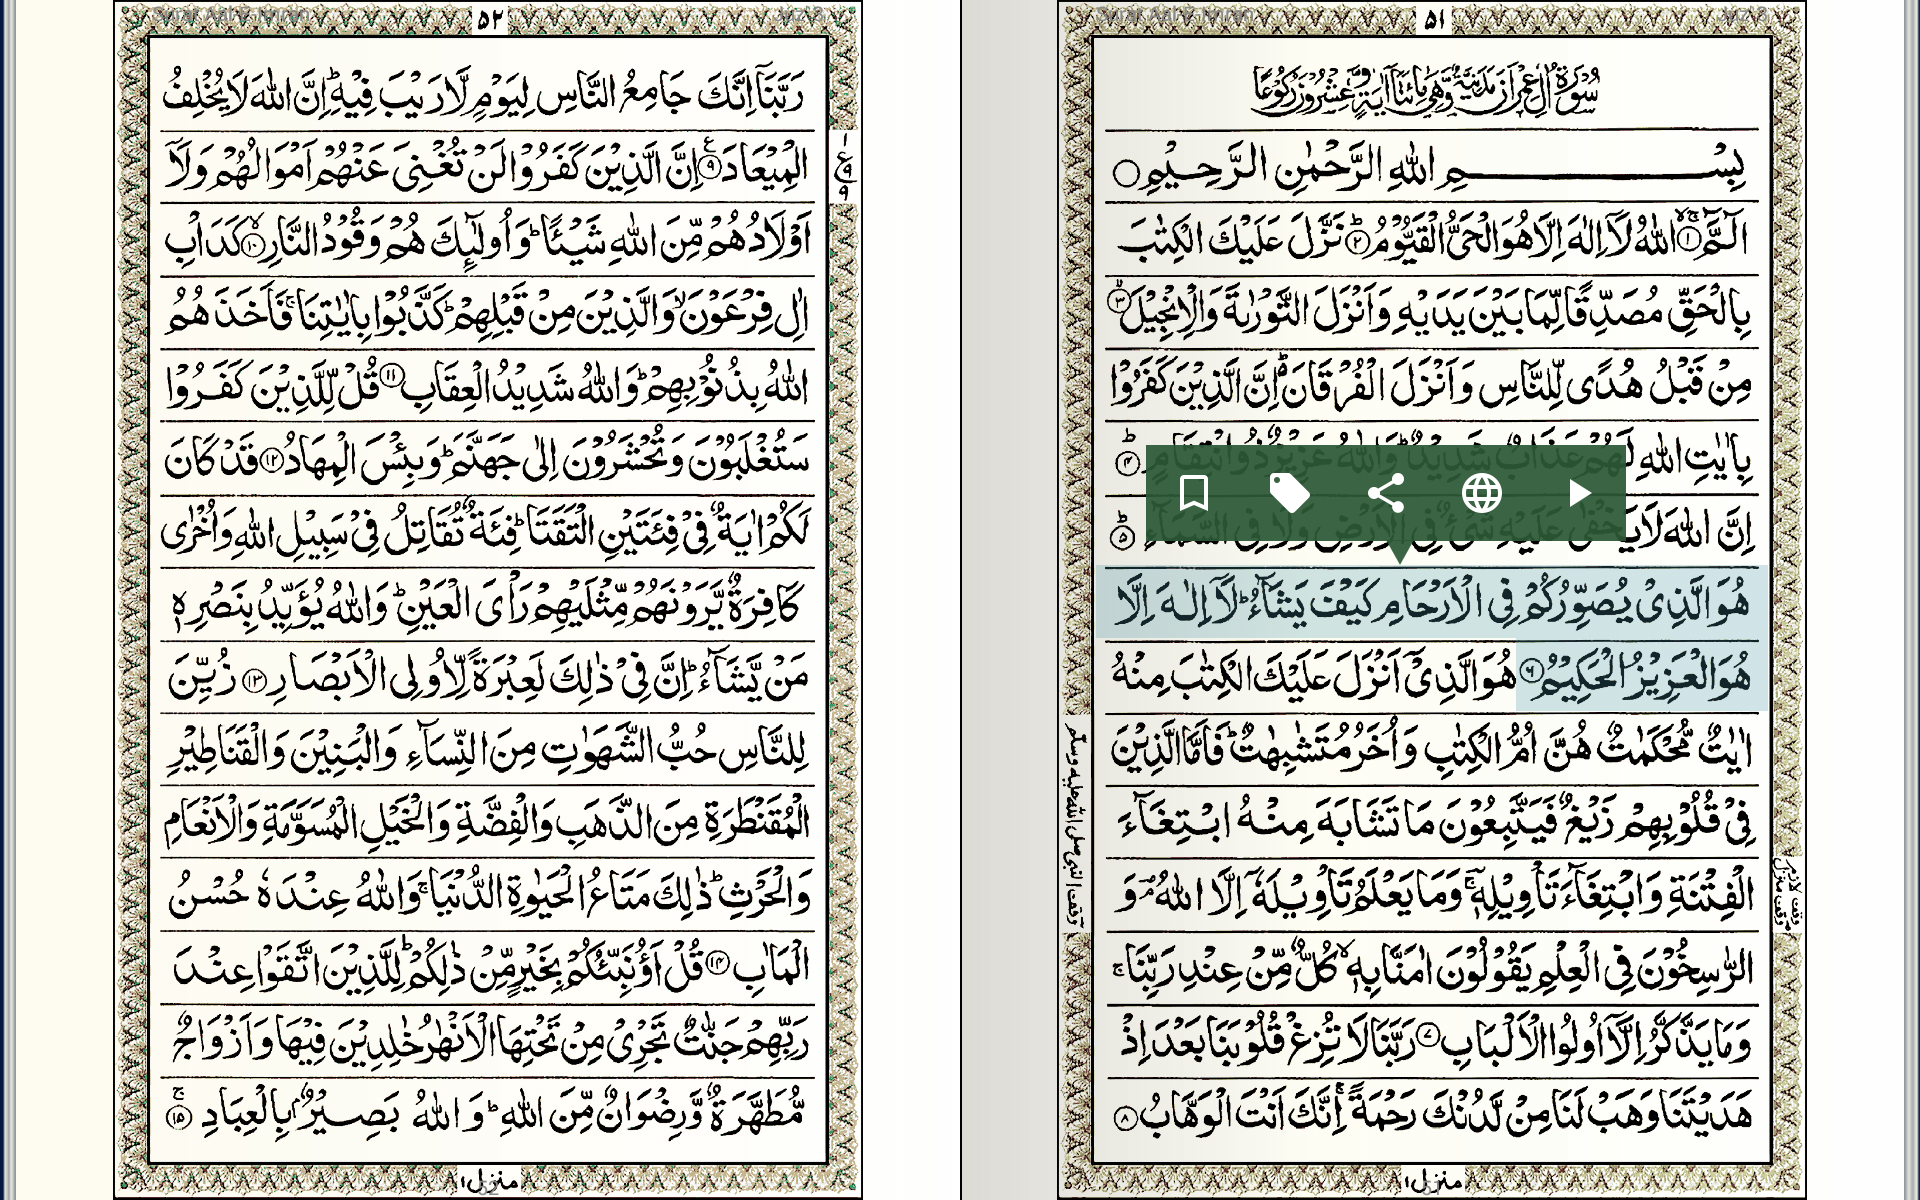 ۵۱
سُوْرَةُ اٰلِ عِمْرٰنَ مَدَنِيَّةٌ وَّهِيَ مِائَتَا اٰيَةٍ وَّعِشْرُوْنَ رُكُوْعًا
بِسْمِ اللّٰهِ الرَّحْمٰنِ الرَّحِيْمِ
الٓمَّٓ ۙ‏ۚ ۱ اللّٰهُ لَاۤ اِلٰهَ اِلَّا هُوَ الْحَىُّ الْقَيُّوْمُ ؕ ۲ نَزَّلَ عَلَيْكَ الْكِتٰبَ
بِالْحَقِّ مُصَدِّقًا لِّمَا بَيْنَ يَدَيْهِ وَاَنْزَلَ التَّوْرٰىةَ وَالْاِنْجِيْلَ ۙ ۳
مِنْ قَبْلُ هُدًى لِّلنَّاسِ وَاَنْزَلَ الْفُرْقَانَ ؕ اِنَّ الَّذِيْنَ كَفَرُوْا
بِاٰيٰتِ اللّٰهِ لَهُمْ عَذَابٌ شَدِيْدٌ ؕ وَاللّٰهُ عَزِيْزٌ ذُوانْتِقَامٍ ؕ ۴
اِنَّ اللّٰهَ لَا يَخْفٰى عَلَيْهِ شَىْءٌ فِى الْاَرْضِ وَلَا فِى السَّمَآءِ ؕ ۵
هُوَ الَّذِىْ يُصَوِّرُكُمْ فِى الْاَرْحَامِ كَيْفَ يَشَآءُ ؕ لَاۤ اِلٰهَ اِلَّا
هُوَ الْعَزِيْزُ الْحَكِيْمُ ۶ هُوَ الَّذِىْۤ اَنْزَلَ عَلَيْكَ الْكِتٰبَ مِنْهُ
اٰيٰتٌ مُّحْكَمٰتٌ هُنَّ اُمُّ الْكِتٰبِ وَاُخَرُ مُتَشٰبِهٰتٌ ؕ فَاَمَّا الَّذِيْنَ
فِىْ قُلُوْبِهِمْ زَيْغٌ فَيَتَّبِعُوْنَ مَا تَشَابَهَ مِنْهُ ابْتِغَآءَ
الْفِتْنَةِ وَابْتِغَآءَ تَاْوِيْلِهٖ ۚ وَمَا يَعْلَمُ تَاْوِيْلَهٗۤ اِلَّا اللّٰهُ ۘ وَ
الرّٰسِخُوْنَ فِى الْعِلْمِ يَقُوْلُوْنَ اٰمَنَّا بِهٖ ۙ كُلٌّ مِّنْ عِنْدِ رَبِّنَا ۚ
وَمَا يَذَّكَّرُ اِلَّاۤ اُولُوا الْاَلْبَابِ ۷ رَبَّنَا لَا تُزِغْ قُلُوْبَنَا بَعْدَ اِذْ
هَدَيْتَنَا وَهَبْ لَنَا مِنْ لَّدُنْكَ رَحْمَةً ۚ اِنَّكَ اَنْتَ الْوَهَّابُ ۸
وقف لازم
وقف منزل
وقف النبي صلى الله عليه وسلم
منزل ۱
۵۲
رَبَّنَاۤ اِنَّكَ جَامِعُ النَّاسِ لِيَوْمٍ لَّا رَيْبَ فِيْهِ ؕ اِنَّ اللّٰهَ لَا يُخْلِفُ
الْمِيْعَادَ ۹ اِنَّ الَّذِيْنَ كَفَرُوْا لَنْ تُغْنِىَ عَنْهُمْ اَمْوَالُهُمْ وَلَاۤ
اَوْلَادُهُمْ مِّنَ اللّٰهِ شَيْئًا ؕ وَاُولٰٓئِكَ هُمْ وَقُوْدُ النَّارِ ۙ ۱۰ كَدَاْبِ
اٰلِ فِرْعَوْنَ ۙ وَالَّذِيْنَ مِنْ قَبْلِهِمْ ؕ كَذَّبُوْا بِاٰيٰتِنَا ۚ فَاَخَذَهُمُ
اللّٰهُ بِذُنُوْبِهِمْ ؕ وَاللّٰهُ شَدِيْدُ الْعِقَابِ ۱۱ قُلْ لِّلَّذِيْنَ كَفَرُوْا
سَتُغْلَبُوْنَ وَتُحْشَرُوْنَ اِلٰى جَهَنَّمَ ؕ وَبِئْسَ الْمِهَادُ ۱۲ قَدْ كَانَ
لَكُمْ اٰيَةٌ فِىْ فِئَتَيْنِ الْتَقَتَا ؕ فِئَةٌ تُقَاتِلُ فِىْ سَبِيْلِ اللّٰهِ وَاُخْرٰى
كَافِرَةٌ يَّرَوْنَهُمْ مِّثْلَيْهِمْ رَاْىَ الْعَيْنِ ؕ وَاللّٰهُ يُؤَيِّدُ بِنَصْرِهٖ
مَنْ يَّشَآءُ ؕ اِنَّ فِىْ ذٰلِكَ لَعِبْرَةً لِّاُولِى الْاَبْصَارِ ۱۳ زُيِّنَ
لِلنَّاسِ حُبُّ الشَّهَوٰتِ مِنَ النِّسَآءِ وَالْبَنِيْنَ وَالْقَنَاطِيْرِ
الْمُقَنْطَرَةِ مِنَ الذَّهَبِ وَالْفِضَّةِ وَالْخَيْلِ الْمُسَوَّمَةِ وَالْاَنْعَامِ
وَالْحَرْثِ ؕ ذٰلِكَ مَتَاعُ الْحَيٰوةِ الدُّنْيَا ۚ وَاللّٰهُ عِنْدَهٗ حُسْنُ
الْمَاٰبِ ۱۴ قُلْ اَؤُنَبِّئُكُمْ بِخَيْرٍ مِّنْ ذٰلِكُمْ ؕ لِلَّذِيْنَ اتَّقَوْا عِنْدَ
رَبِّهِمْ جَنّٰتٌ تَجْرِىْ مِنْ تَحْتِهَا الْاَنْهٰرُ خٰلِدِيْنَ فِيْهَا وَاَزْوَاجٌ
مُّطَهَّرَةٌ وَّرِضْوَانٌ مِّنَ اللّٰهِ ؕ وَاللّٰهُ بَصِيْرٌۢ بِالْعِبَادِ ۚ ۱۵
۱
ع
۹
۹
منزل ۱
52